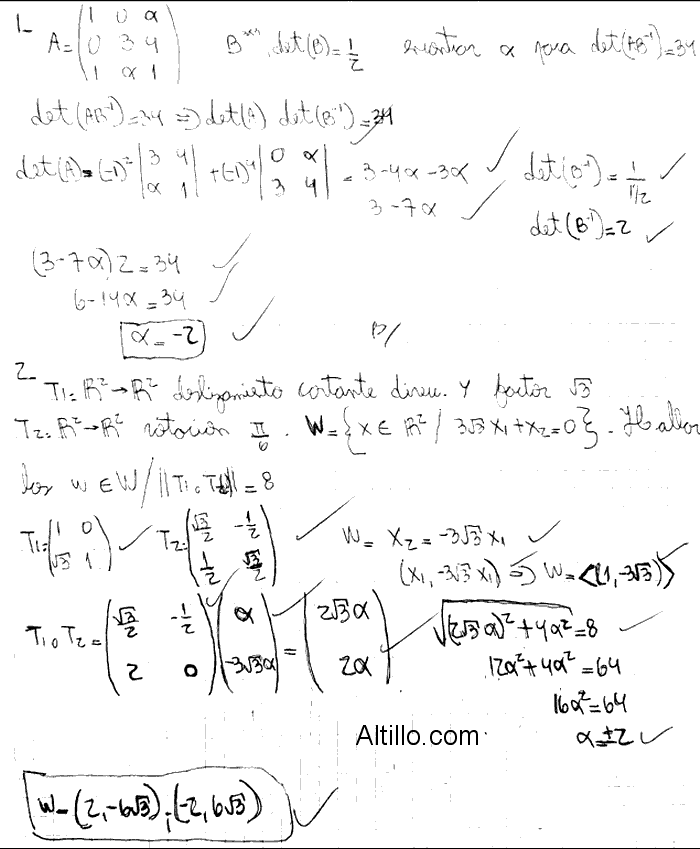 1- A = (1 0 α / 0 3 4 / 1 α 1) B³ˣ³, det(B) = 1/2 encontrar α para det(AB⁻¹) = 34
det(AB⁻¹) = 34 ⇒ det(A) det(B⁻¹) = 34
det(A) = (-1)² |3 4 / α 1| + (-1)⁴ |0 α / 3 4| = 3 - 4α - 3α det(B⁻¹) = 1/(1/2)
3 - 7α det(B⁻¹) = 2
(3 - 7α) 2 = 34
6 - 14α = 34
α = -2
2- T1: R² → R² deslizamiento cortante direc. Y factor √3
T2: R² → R² rotación π/6 . W = {x ∈ R² / 3√3 x₁ + x₂ = 0}. Hallar
los w ∈ W / ||T1 o T2|| = 8
T1 = (1 0 / √3 1) T2 = (√3/2 -1/2 / 1/2 √3/2) W = x₂ = -3√3 x₁
(x₁, -3√3 x₁) ⇒ W = <(1, -3√3)>
T1 o T2 = (√3/2 -1/2 / 2 0) (α / -3√3α) = (2√3α / 2α) √((2√3α)² + 4α²) = 8
12α² + 4α² = 64
16α² = 64
α = ±2
Altillo.com
W = (2, -6√3) ; (-2, 6√3)